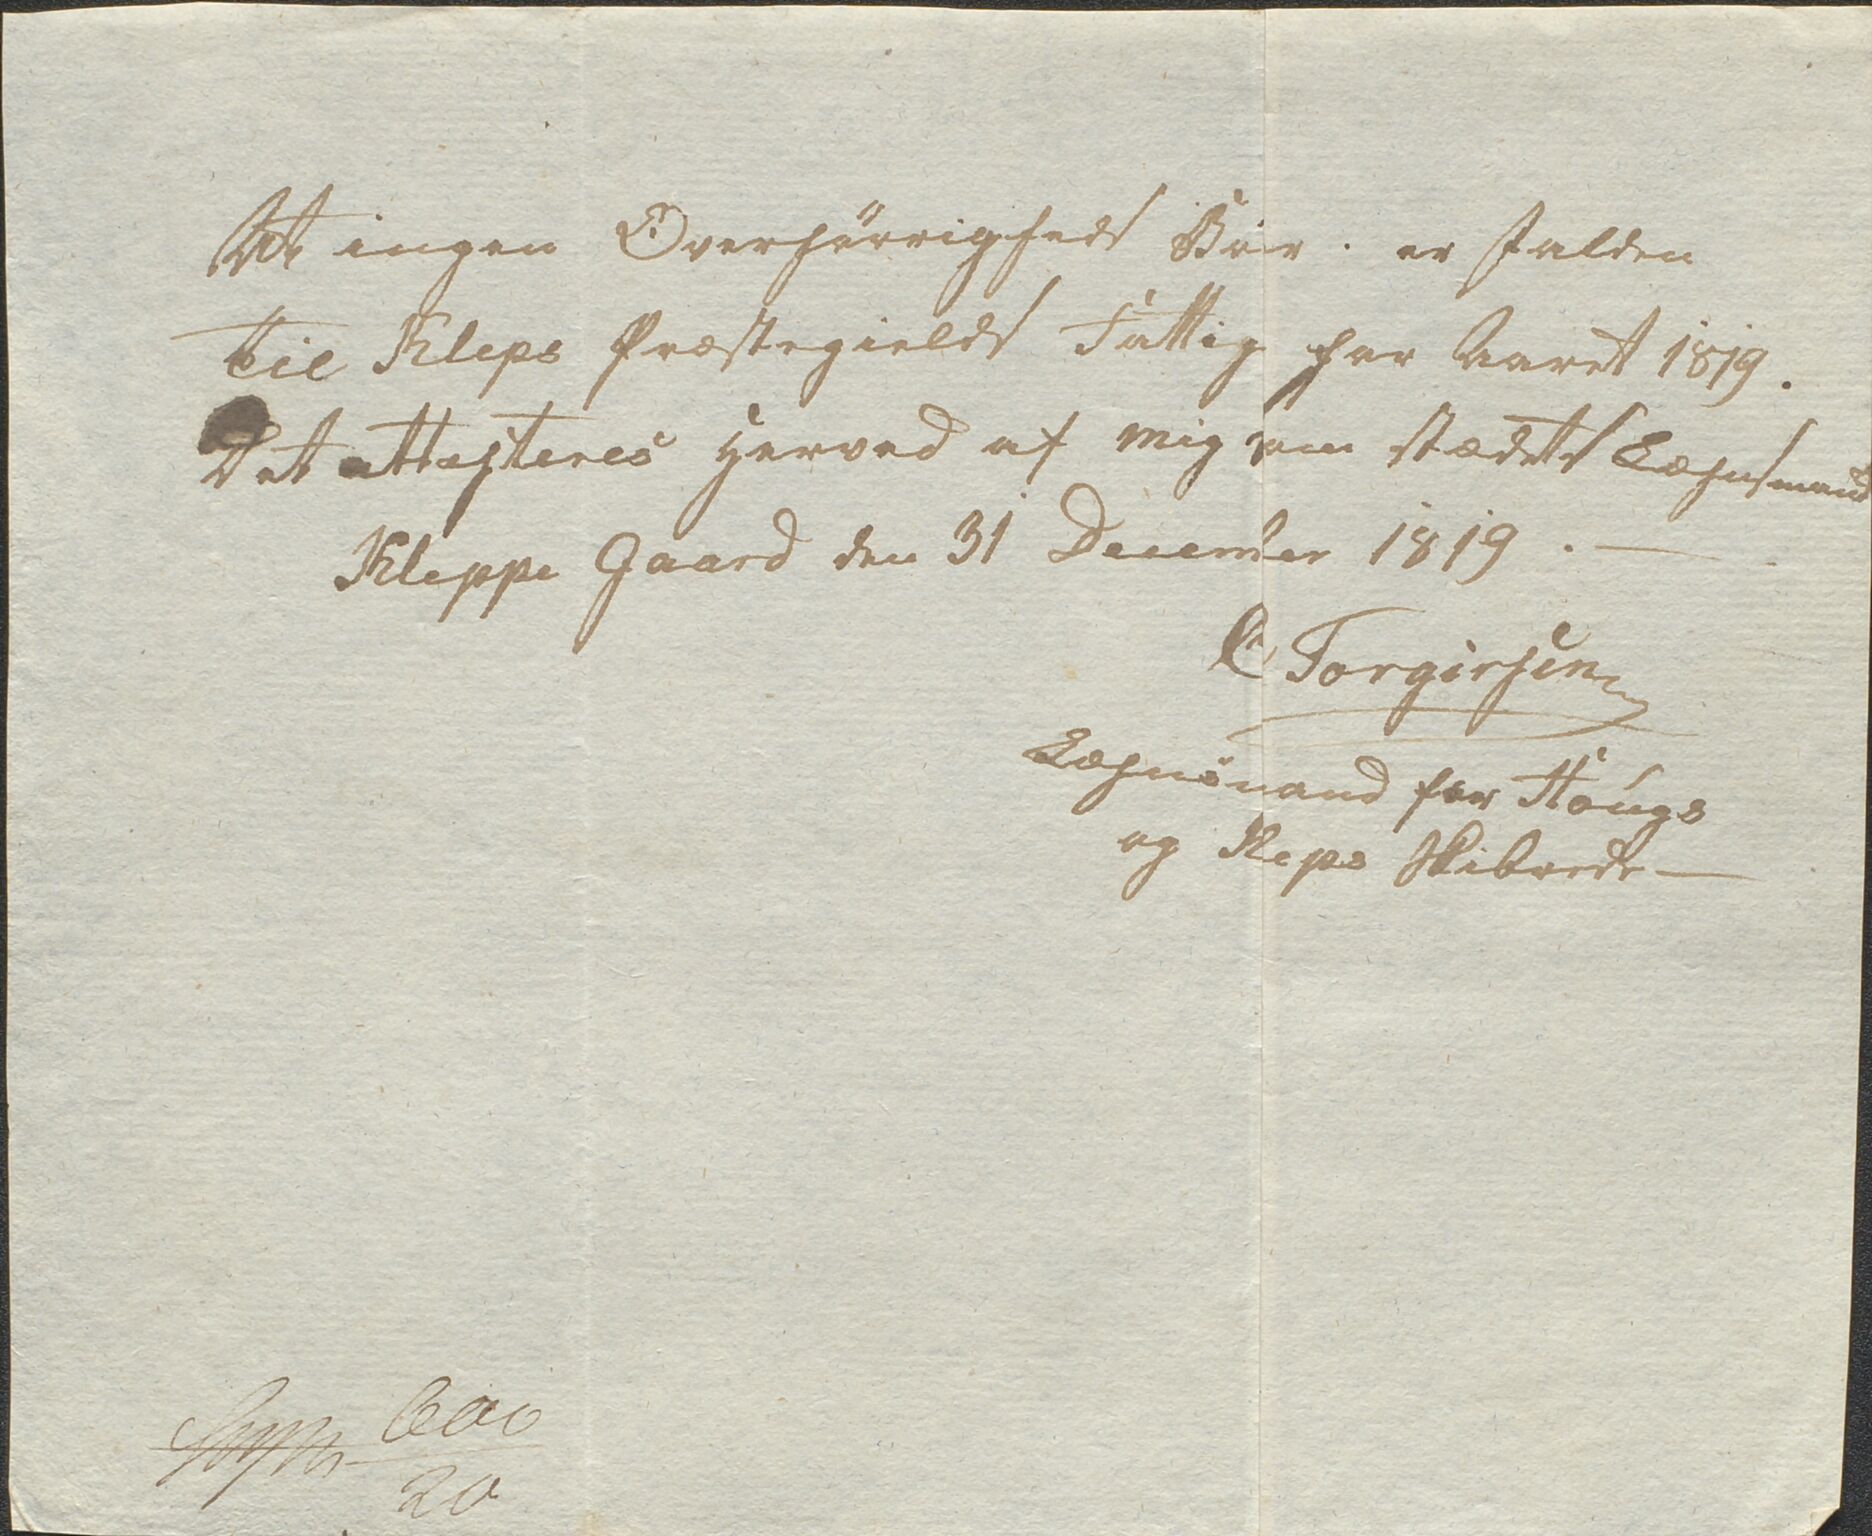 At ingen Overhörrigheds Bör. er falden
til Kleps Præstegields Fattig for Aaret 1819.
Det attesteres herved af mig som stædets Læhnsmand
Kleppe Gaard den 31 December 1819. —
C Torgirsen
Læhnsmand for Hougs
og Kleps Skibrede —
600
20